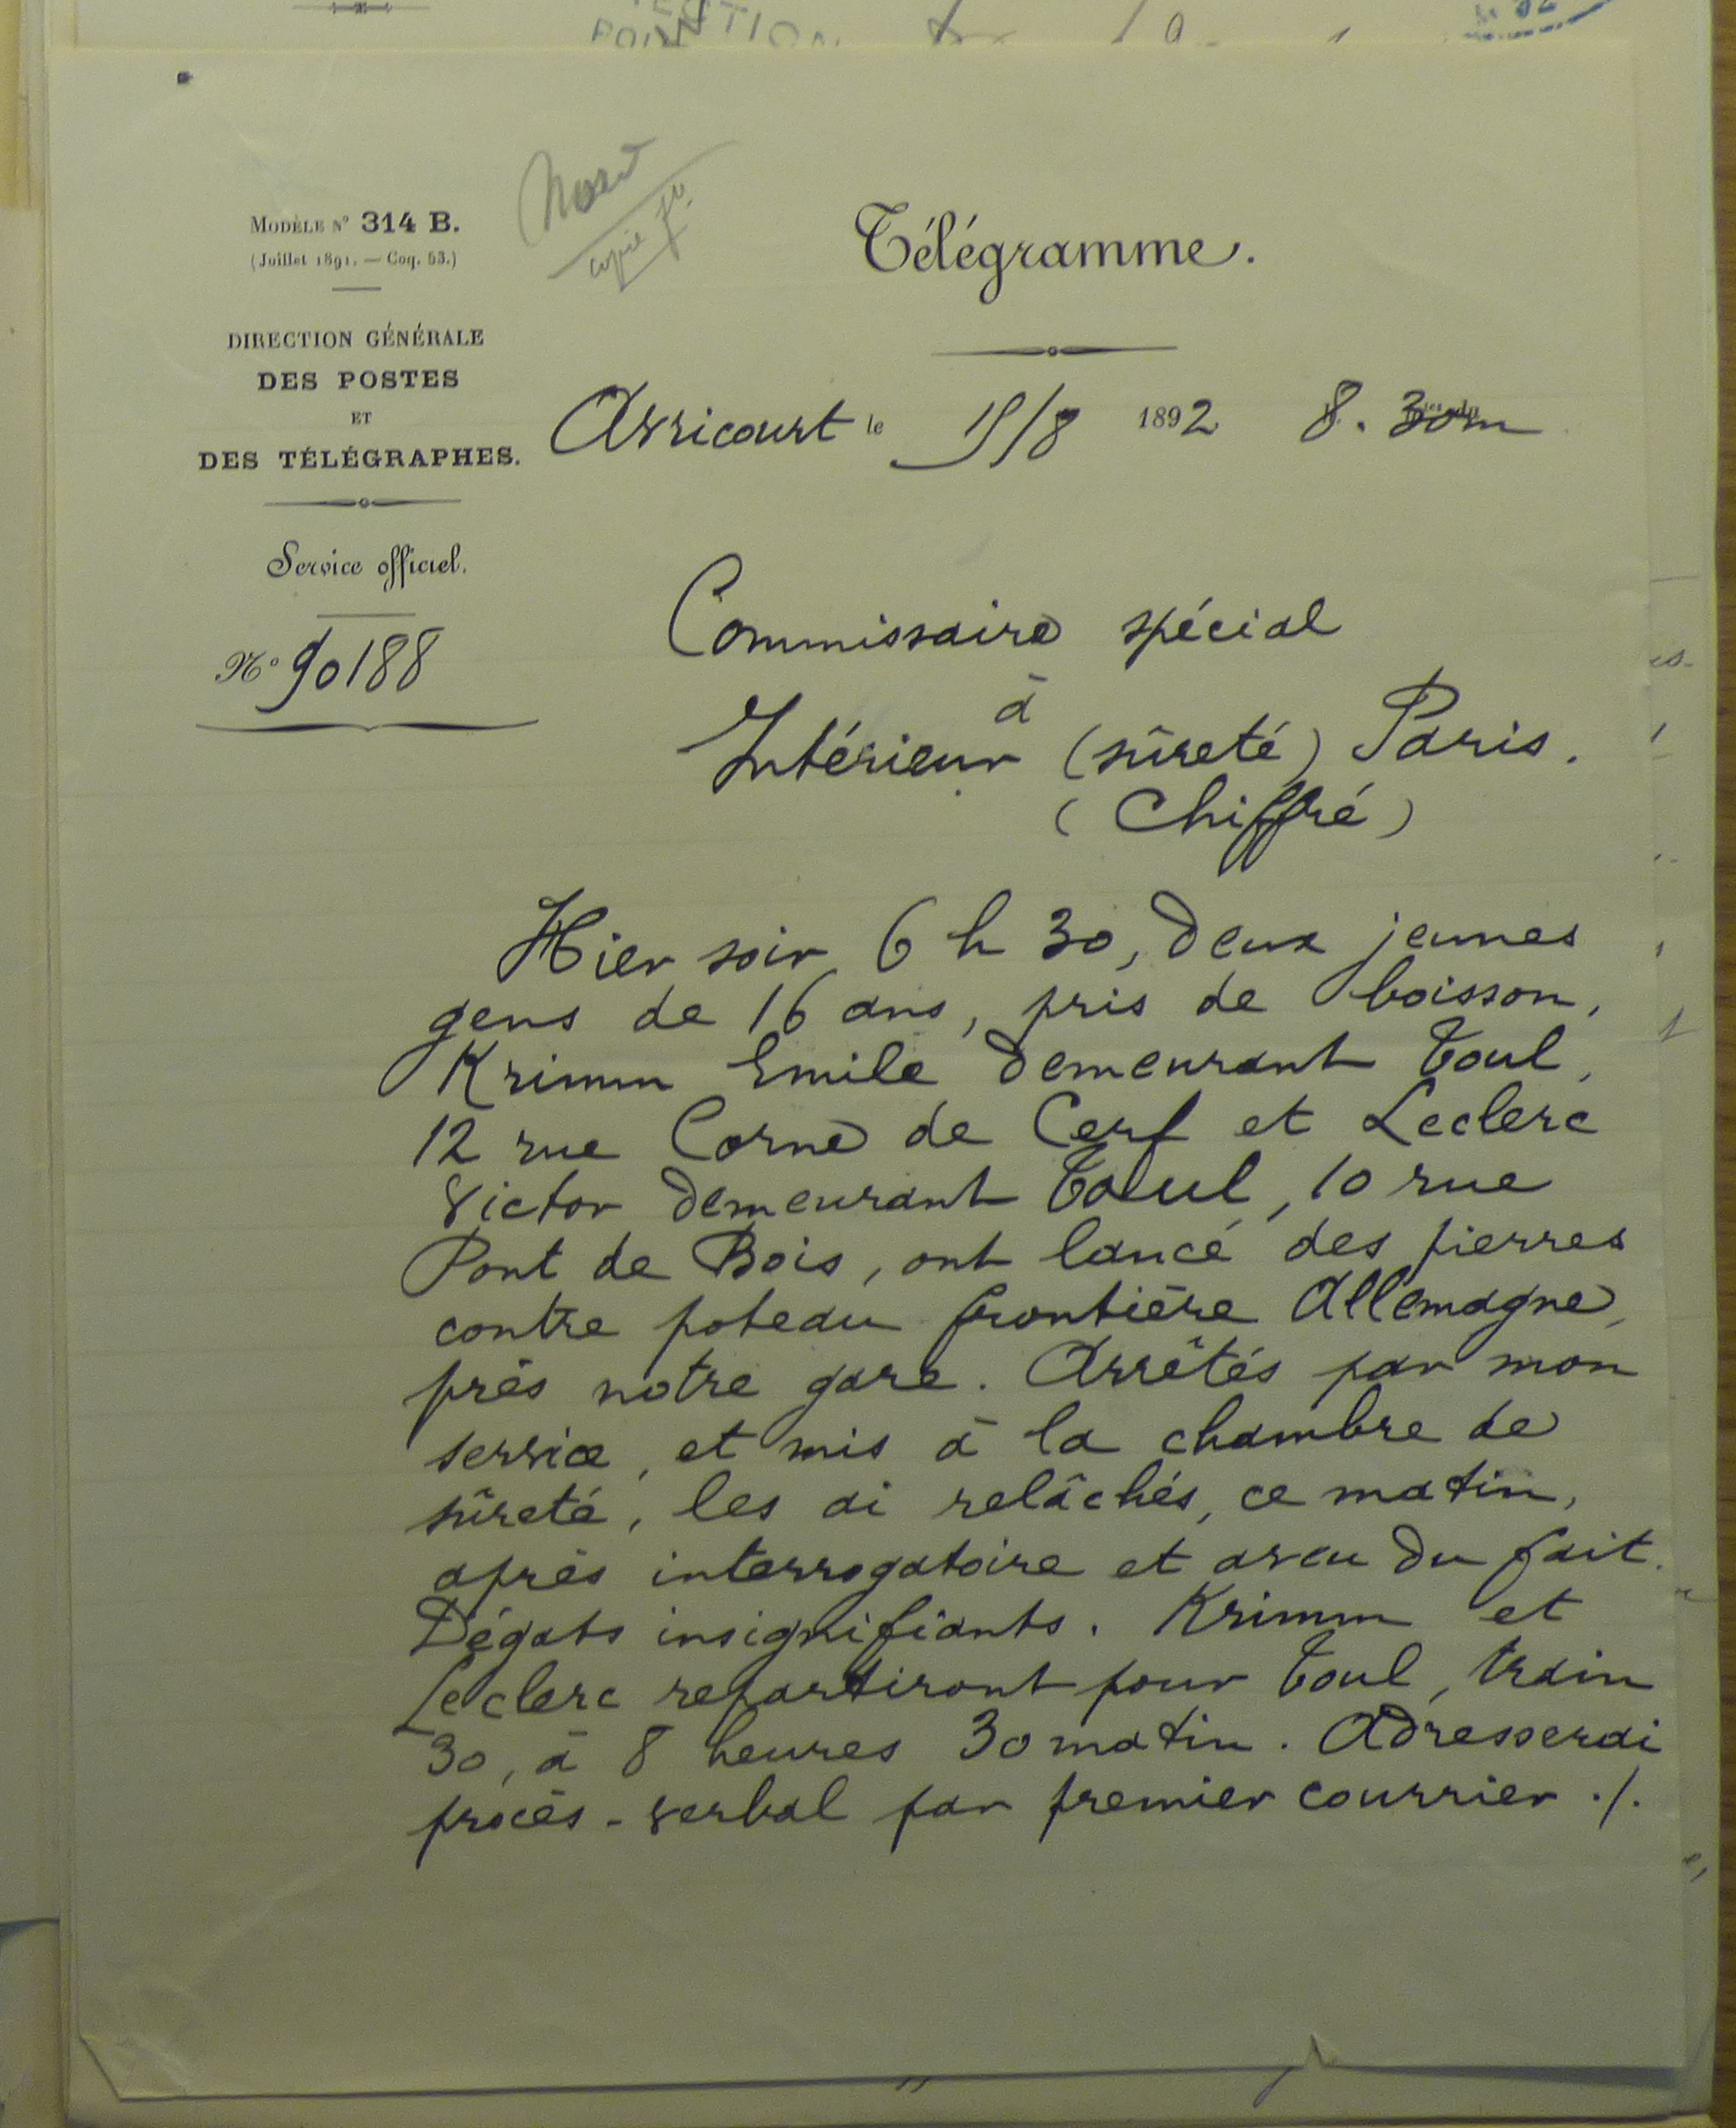 MODÈLE N° 314 B.
(Juillet 1891. — Coq. 53.)
DIRECTION GÉNÉRALE
DES POSTES
ET
DES TÉLÉGRAPHES.
Service officiel.
N° 90188
copie
Télégramme.
Avricourt le 15/8 1892 8. 30m
Commissaire spécial
à
Intérieur (sûreté) Paris.
(Chiffré)
Hier soir 6 h 30, deux jeunes
gens de 16 ans, pris de boisson,
Krimm Emile demeurant Toul,
12 rue Corne de Cerf et Leclerc
Victor demeurant Toul, 10 rue
Pont de Bois, ont lancé des pierres
contre poteau frontière Allemagne,
près notre gare. Arrêtés par mon
service, et mis à la chambre de
sûreté, les ai relâchés, ce matin,
après interrogatoire et aveu du fait.
Dégats insignifiants. Krimm et
Leclerc repartiront pour Toul, train
30, à 8 heures 30 matin. Adresserai
procès-verbal par premier courrier ./.